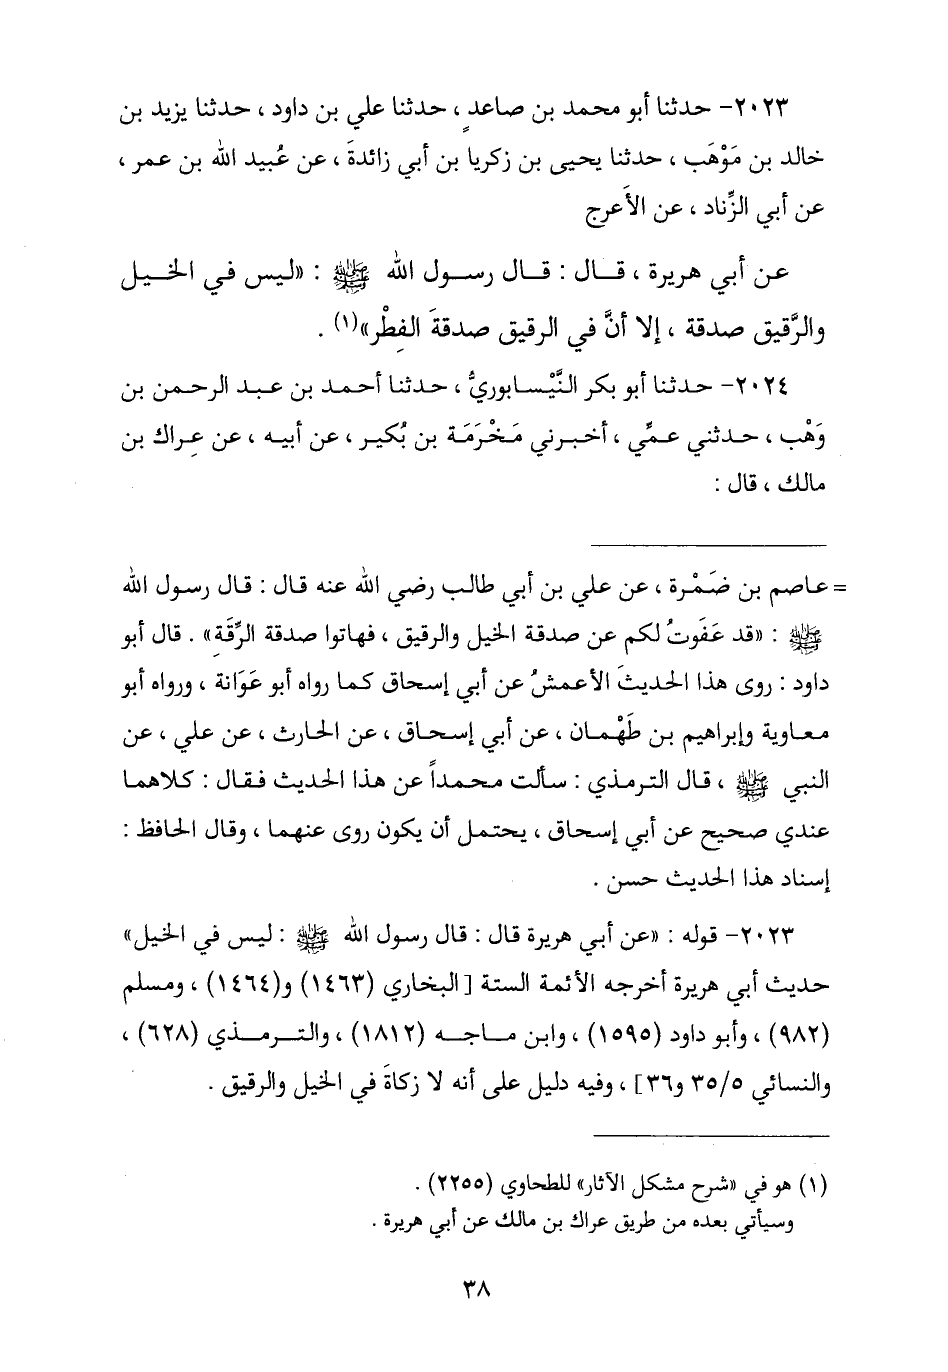 ٢٠٢٣- حدثنا أبو محمد بن صاعدٍ ، حدثنا علي بن داود ، حدثنا يزيد بن
خالد بن مَوْهَب ، حدثنا يحيى بن زكريا بن أبي زائدةَ ، عن عُبيد الله بن عمر ،
عن أبي الزِّناد ، عن الأَعرج
عن أبي هريرة ، قـال : قـال رسـول الله ﷺ : «ليس في الخـيل
والرَّقيق صدقة ، إلا أنَّ في الرقيق صدقةَ الفِطْر»(١) .
٢٠٢٤- حدثنا أبو بكر النَّيْسابوريُّ ، حدثنا أحمد بن عبد الرحمن بن
وَهْب ، حدثني عمِّي ، أخبرني مَخْرَمَة بن بُكير ، عن أبيه ، عن عِراك بن
مالك ، قال :
= عاصم بن ضَمْرة ، عن علي بن أبي طالب رضي الله عنه قال : قال رسول الله
ﷺ : «قد عَفَوتُ لكم عن صدقة الخيل والرقيق ، فهاتوا صدقة الرِّقَة» . قال أبو
داود : روى هذا الحديثَ الأعمشُ عن أبي إسحاق كما رواه أبو عَوَانة ، ورواه أبو
معاوية وإبراهيم بن طَهْمان ، عن أبي إسحاق ، عن الحارث ، عن علي ، عن
النبي ﷺ ، قال الترمذي : سألت محمداً عن هذا الحديث فقال : كلاهما
عندي صحيح عن أبي إسحاق ، يحتمل أن يكون روى عنهما ، وقال الحافظ :
إسناد هذا الحديث حسن .
٢٠٢٣- قوله : «عن أبي هريرة قال : قال رسول الله ﷺ : ليس في الخيل»
حديث أبي هريرة أخرجه الأئمة الستة [البخاري (١٤٦٣) و(١٤٦٤) ، ومسلم
(٩٨٢) ، وأبو داود (١٥٩٥) ، وابن مـاجـه (١٨١٢) ، والتـرمـذي (٦٢٨) ،
والنسائي ٣٥/٥ و٣٦] ، وفيه دليل على أنه لا زكاةَ في الخيل والرقيق .
(١) هو في «شرح مشكل الآثار» للطحاوي (٢٢٥٥) .
وسيأتي بعده من طريق عراك بن مالك عن أبي هريرة .
٣٨